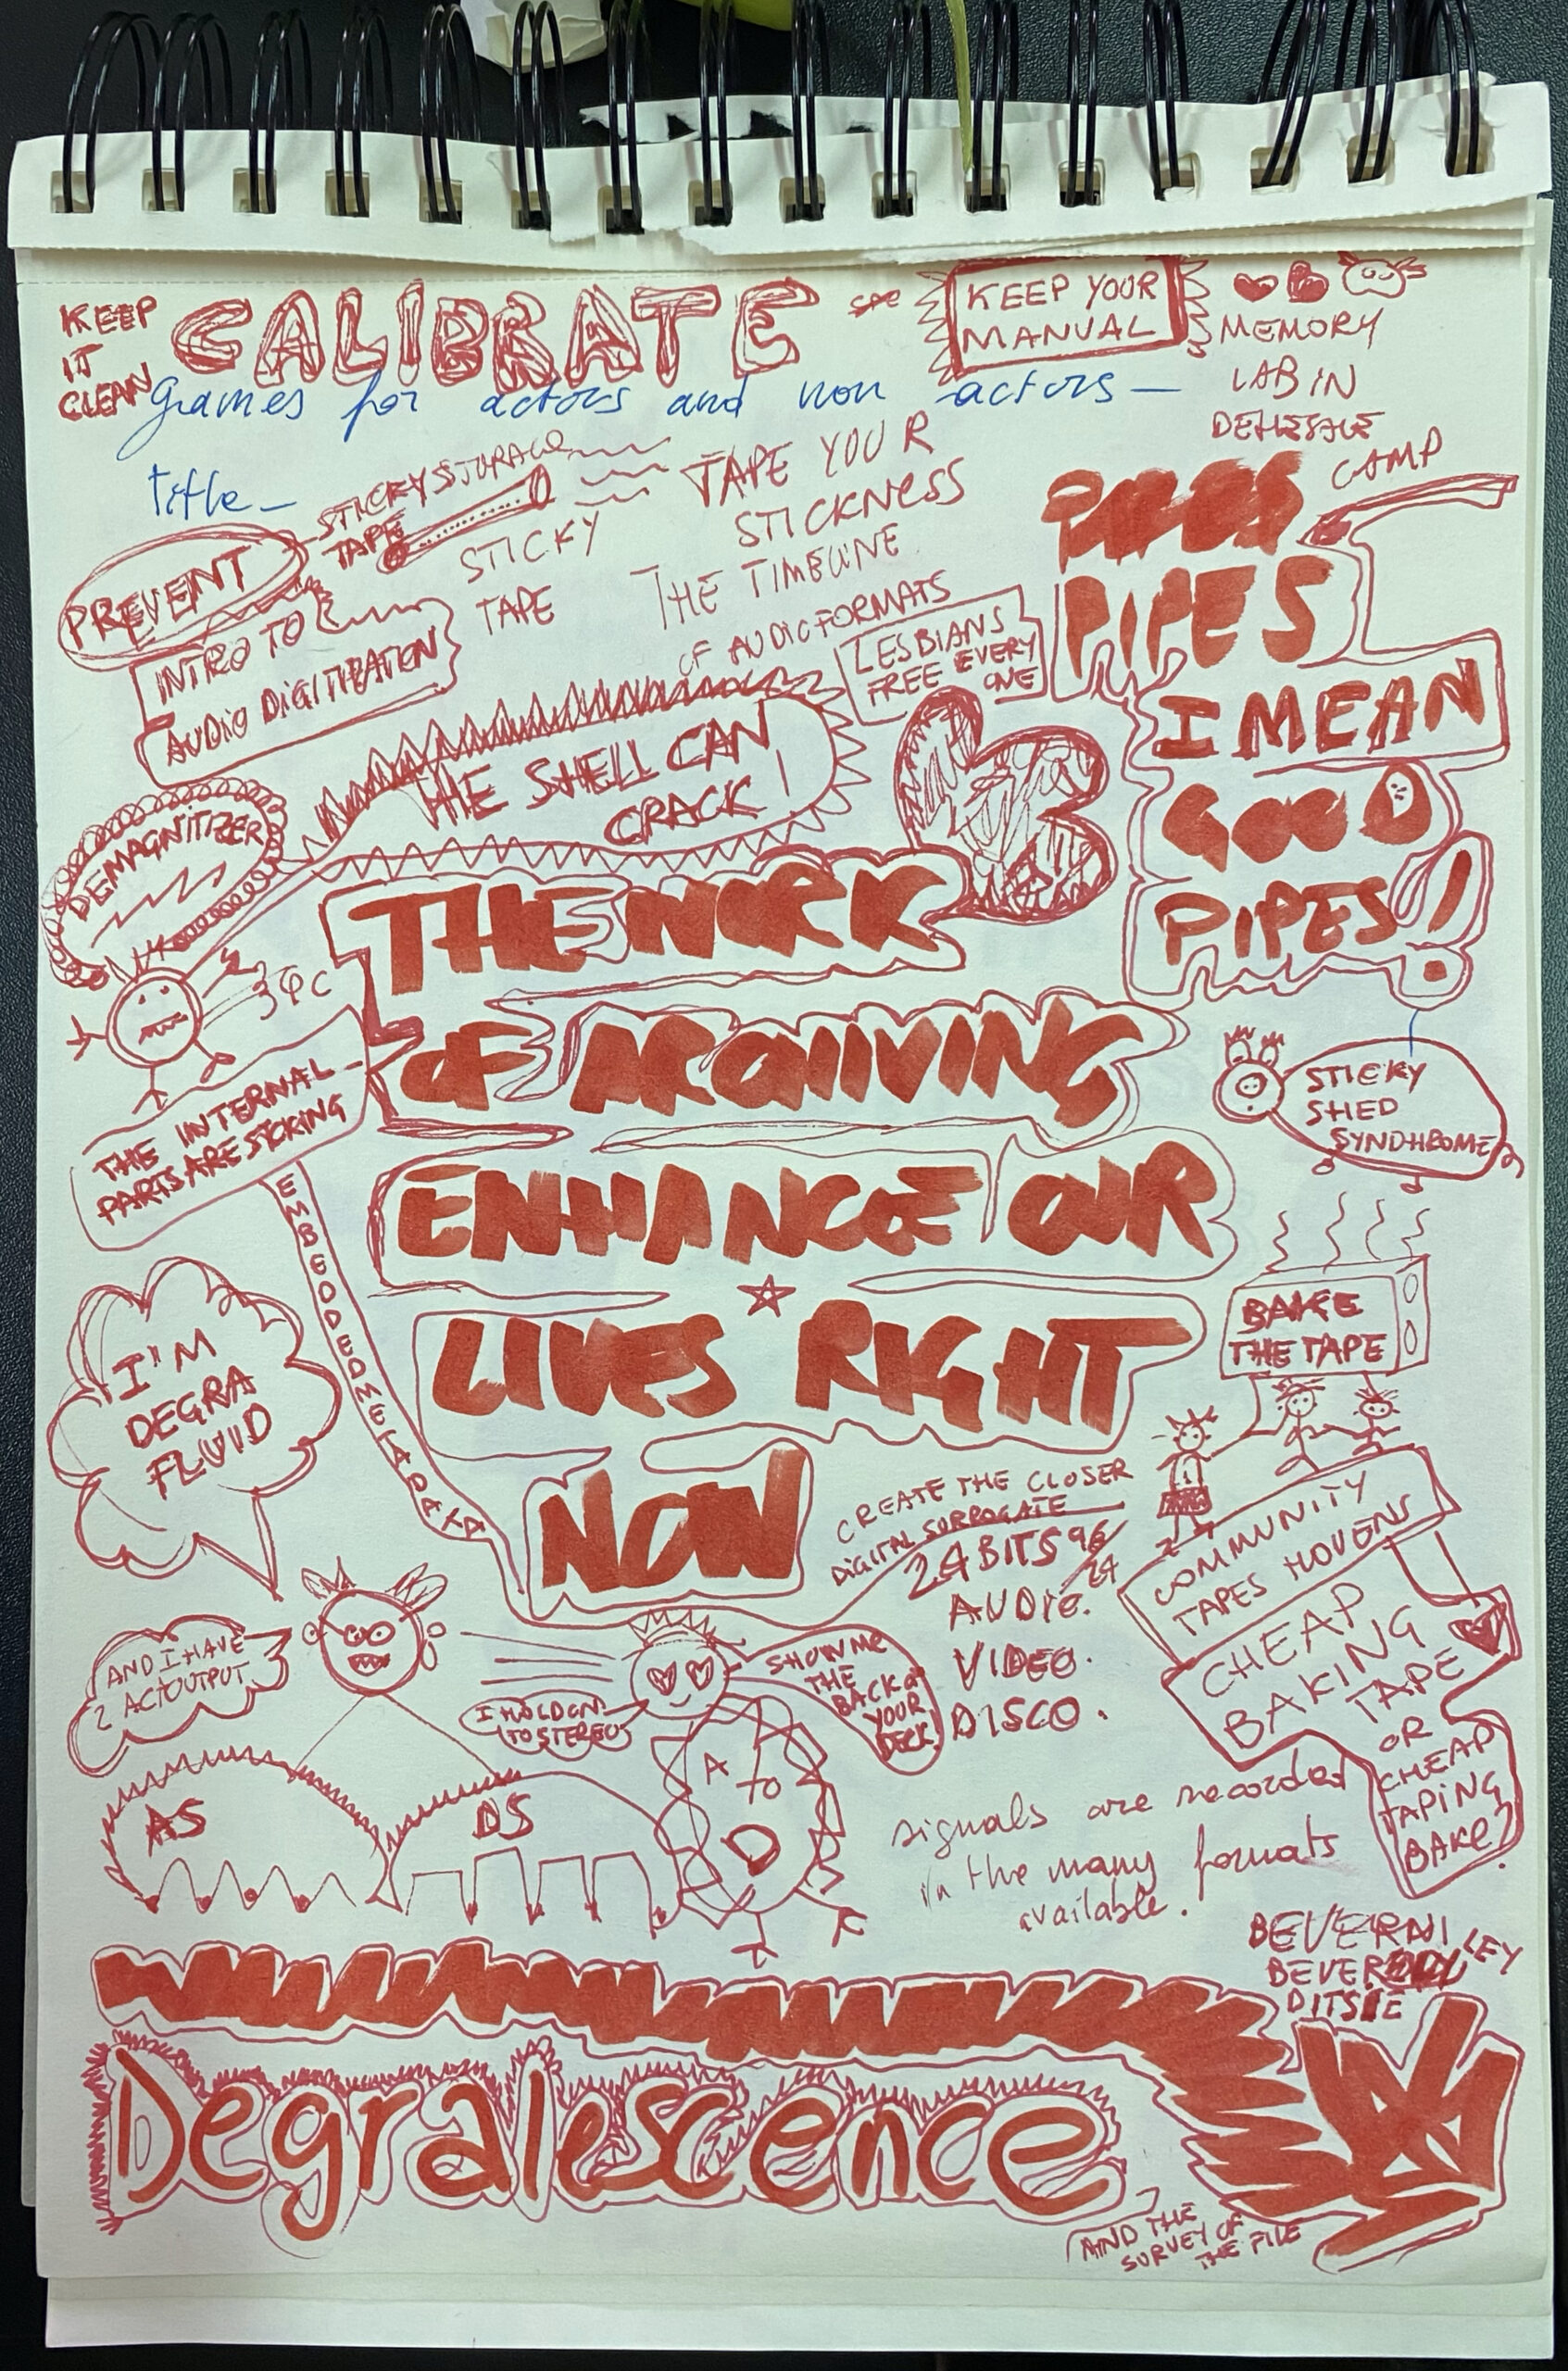 KEEP
IT
CLEAN
CALIBRATE
KEEP YOUR
MANUAL
MEMORY
LAB IN
CAMP
games for actors and non actors —
title —
PREVENT
STICKY STORAGE
TAPE
STICKY
TAPE
TAPE YOUR
STICKNESS
THE TIMELINE
OF AUDIO FORMATS
INTRO TO
AUDIO DIGITIZATION
LESBIANS
FREE EVERY
ONE
PIPES
I MEAN
GOOD
PIPES!
THE SHELL CAN
CRACK!
DEMAGNITIZER
THE WORK
OF ARCHIVING
ENHANCE OUR
LIVES RIGHT
NOW
THE INTERNAL
PARTS ARE STICKING
EMBEDDED METADATA
STICKY
SHED
SYNDHROME
BAKE
THE TAPE
I'M
DEGRA
FLUID
CREATE THE CLOSER
DIGITAL SURROGATE
24 BITS 96/24
AUDIO.
VIDEO.
DISCO.
COMMUNITY
TAPES HOVENS
CHEAP
BAKING
TAPE
OR
CHEAP
TAPING
BAKE?
AND I HAVE
2 ACTOUTPUT
I HOLD ON
TO STEREO
SHOW ME
THE
BACK OF
YOUR
DECK!
AS
DS
A
to
D
signals are recorded
in the many formats
available.
BEVERNI
BEVERLEY
DITSIE
Degralescence
AND THE
SURVEY OF
THE FILE